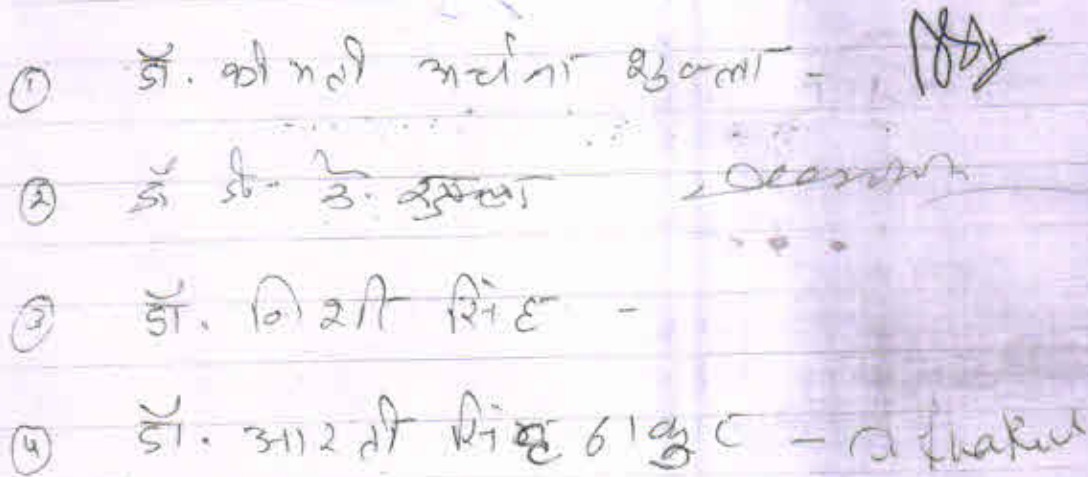 ① डॉ. श्रीमती अर्चना शुक्ला -
② डॉ डी. के. शुक्ला
③ डॉ. निशी सिंह -
④ डॉ. आरती सिंह ठाकुर - Thakur